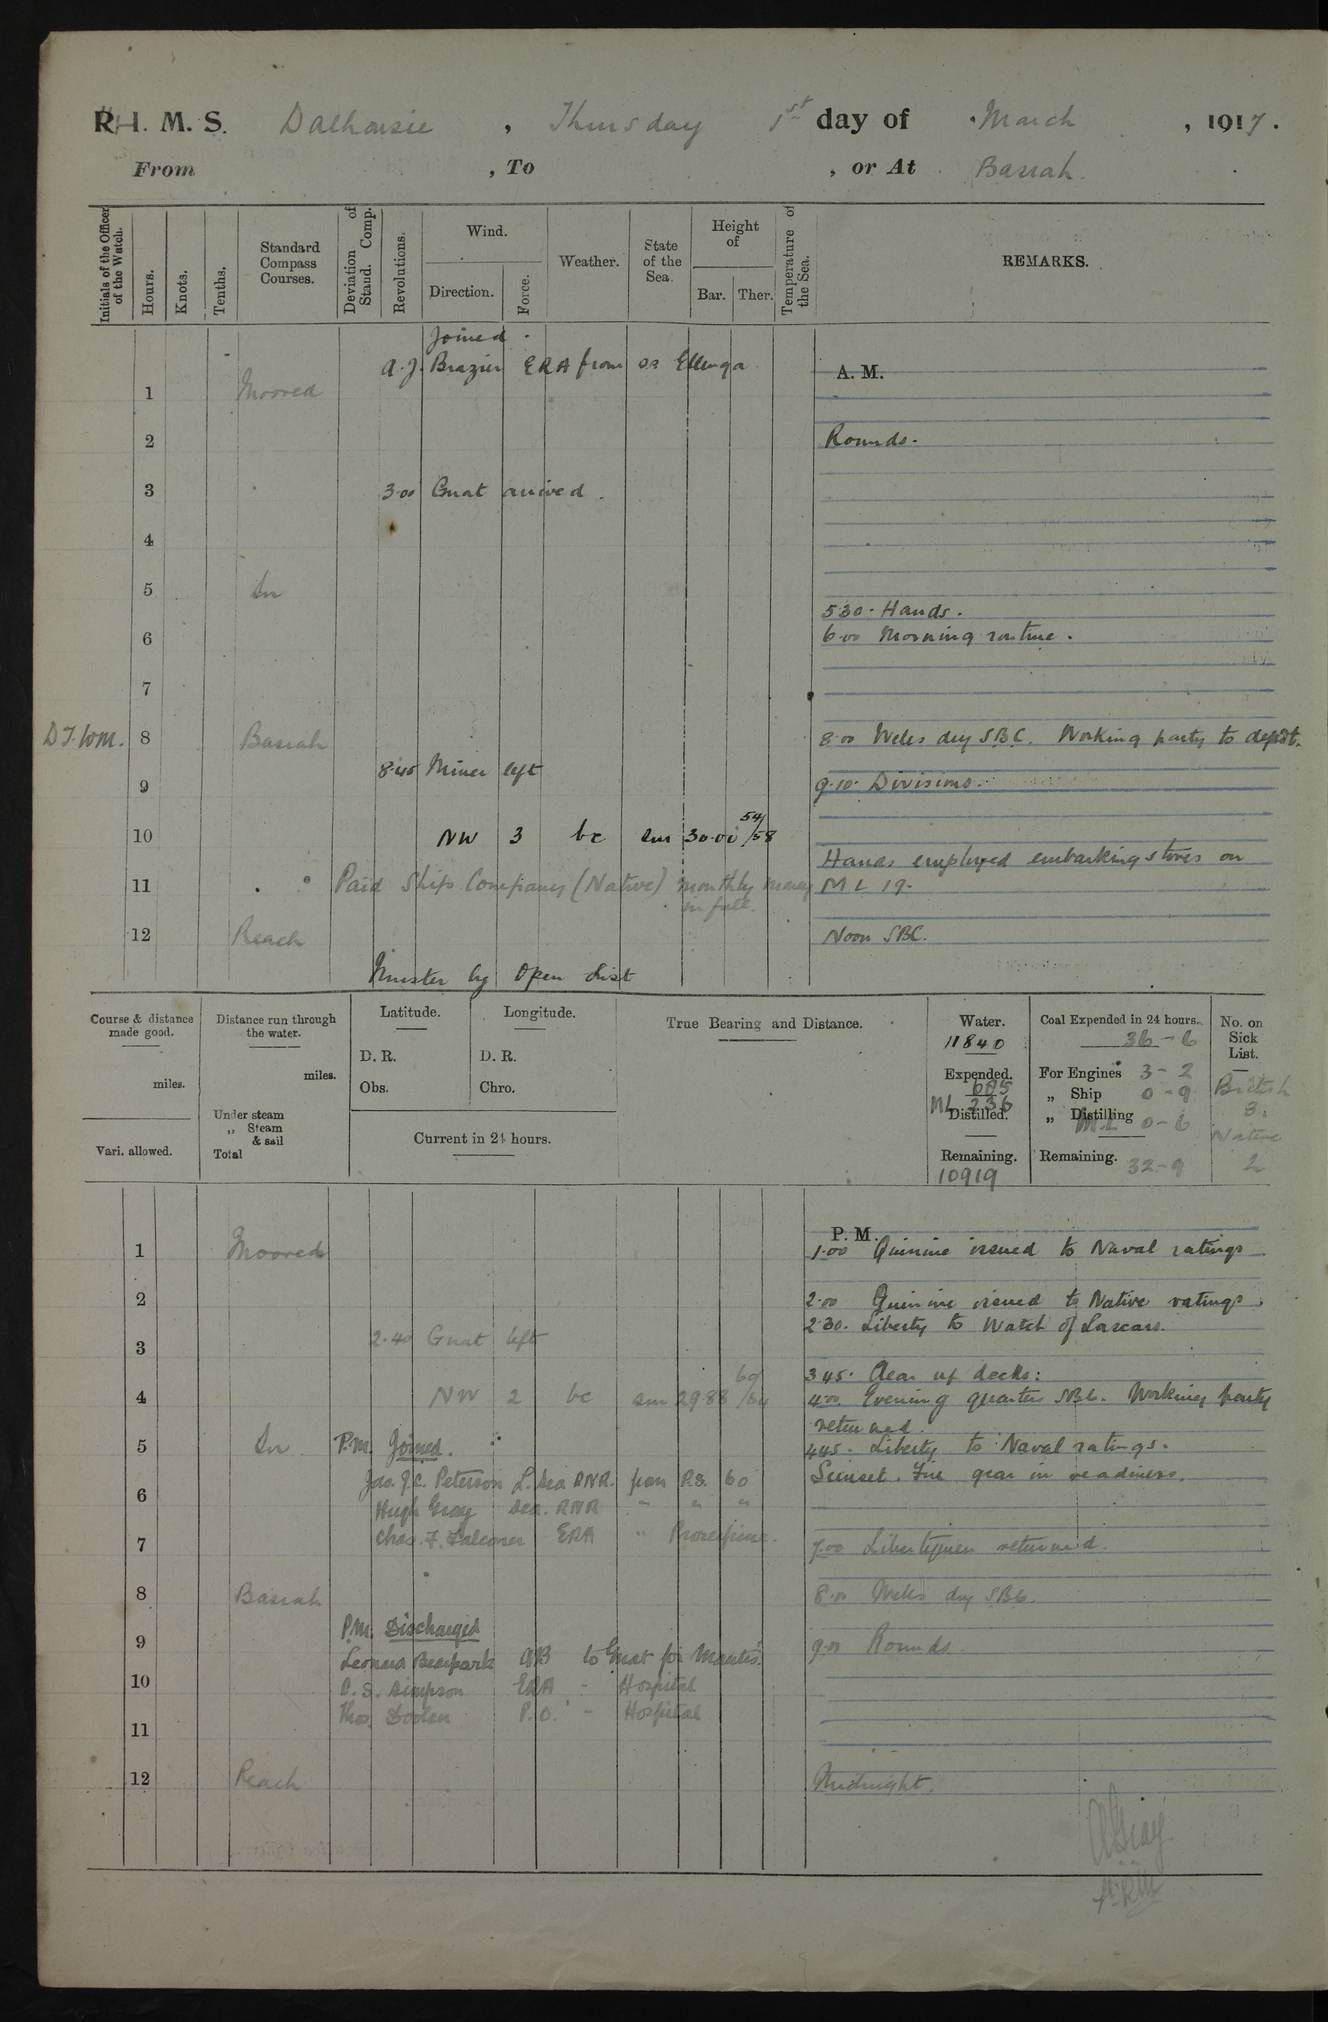 R.I.M.S. Dalhousie, Thursday 1st day of March, 1917.
From , To , or At Basrah.
Initials of the Officer of the Watch.
Hours.
Knots.
Tenths.
Standard Compass Courses.
Deviation of Stand. Comp.
Revolutions.
Wind.
Direction.
Force.
Weather.
State of the Sea.
Height of
Bar.
Ther.
Temperature of the Sea.
REMARKS.
Joined.
A. J. Brazier ERA from ss Ellenga
A. M.
1 Moored
2 Rounds.
3 3.00 Gnat arrived.
4
5 In
5.30. Hands.
6 6.00 Morning routine.
7
D.J.WM. 8 Basrah 8.00 Wells dry SBC. Working party to depôt.
8.45 Miner left
9 9.10. Divisions.
10 NW 3 bc sm 30.00 54/58
Hands employed embarking stores on
11 Paid Ships Company (Native) monthly money ML 19.
in full.
12 Reach Noon SBC.
Muster by Open List
Course & distance made good.
miles.
Vari. allowed.
Distance run through the water.
miles.
Under steam
„ Steam & sail
Total
Latitude.
D. R.
Obs.
Longitude.
D. R.
Chro.
Current in 24 hours.
True Bearing and Distance.
Water.
11840
Expended.
685
ML 236
Distilled.
Remaining.
10919
Coal Expended in 24 hours.
36-6
For Engines 3-2
„ Ship 0-9
„ Distilling
M.L 0-6
Remaining. 32-9
No. on Sick List.
British
3.
Native
2
P. M.
1 Moored 1.00 Quinine issued to Naval ratings
2 2.00 Quinine issued to Native ratings.
2.30. Liberty to Watch of Lascars.
2.40 Gnat left
3
3.45. Clear up decks:
4 NW 2 bc sm 29.88 60/64 4.00 Evening quarters SBC. Working party
returned.
5 In P.M. Joined. 4.45. Liberty to Naval ratings.
Jas. J.C. Peterson L. Sea RNR. from P.S. 60 Sunset. Fire gear in readiness.
6 Hugh Gray Sea. RNR " " "
Chas. F. Falconer ERA " Proserpine.
7 7.00 Libertymen returned.
8 Basrah 8.00 Wells dry SBC.
P.M. Discharged
9 9.00 Rounds.
Leonard Bearpark AB to Gnat for Mantis.
10 C. S. Simpson ERA - Hospital
Thos. Doolan P.O. - Hospital
11
12 Reach Midnight.
AGray